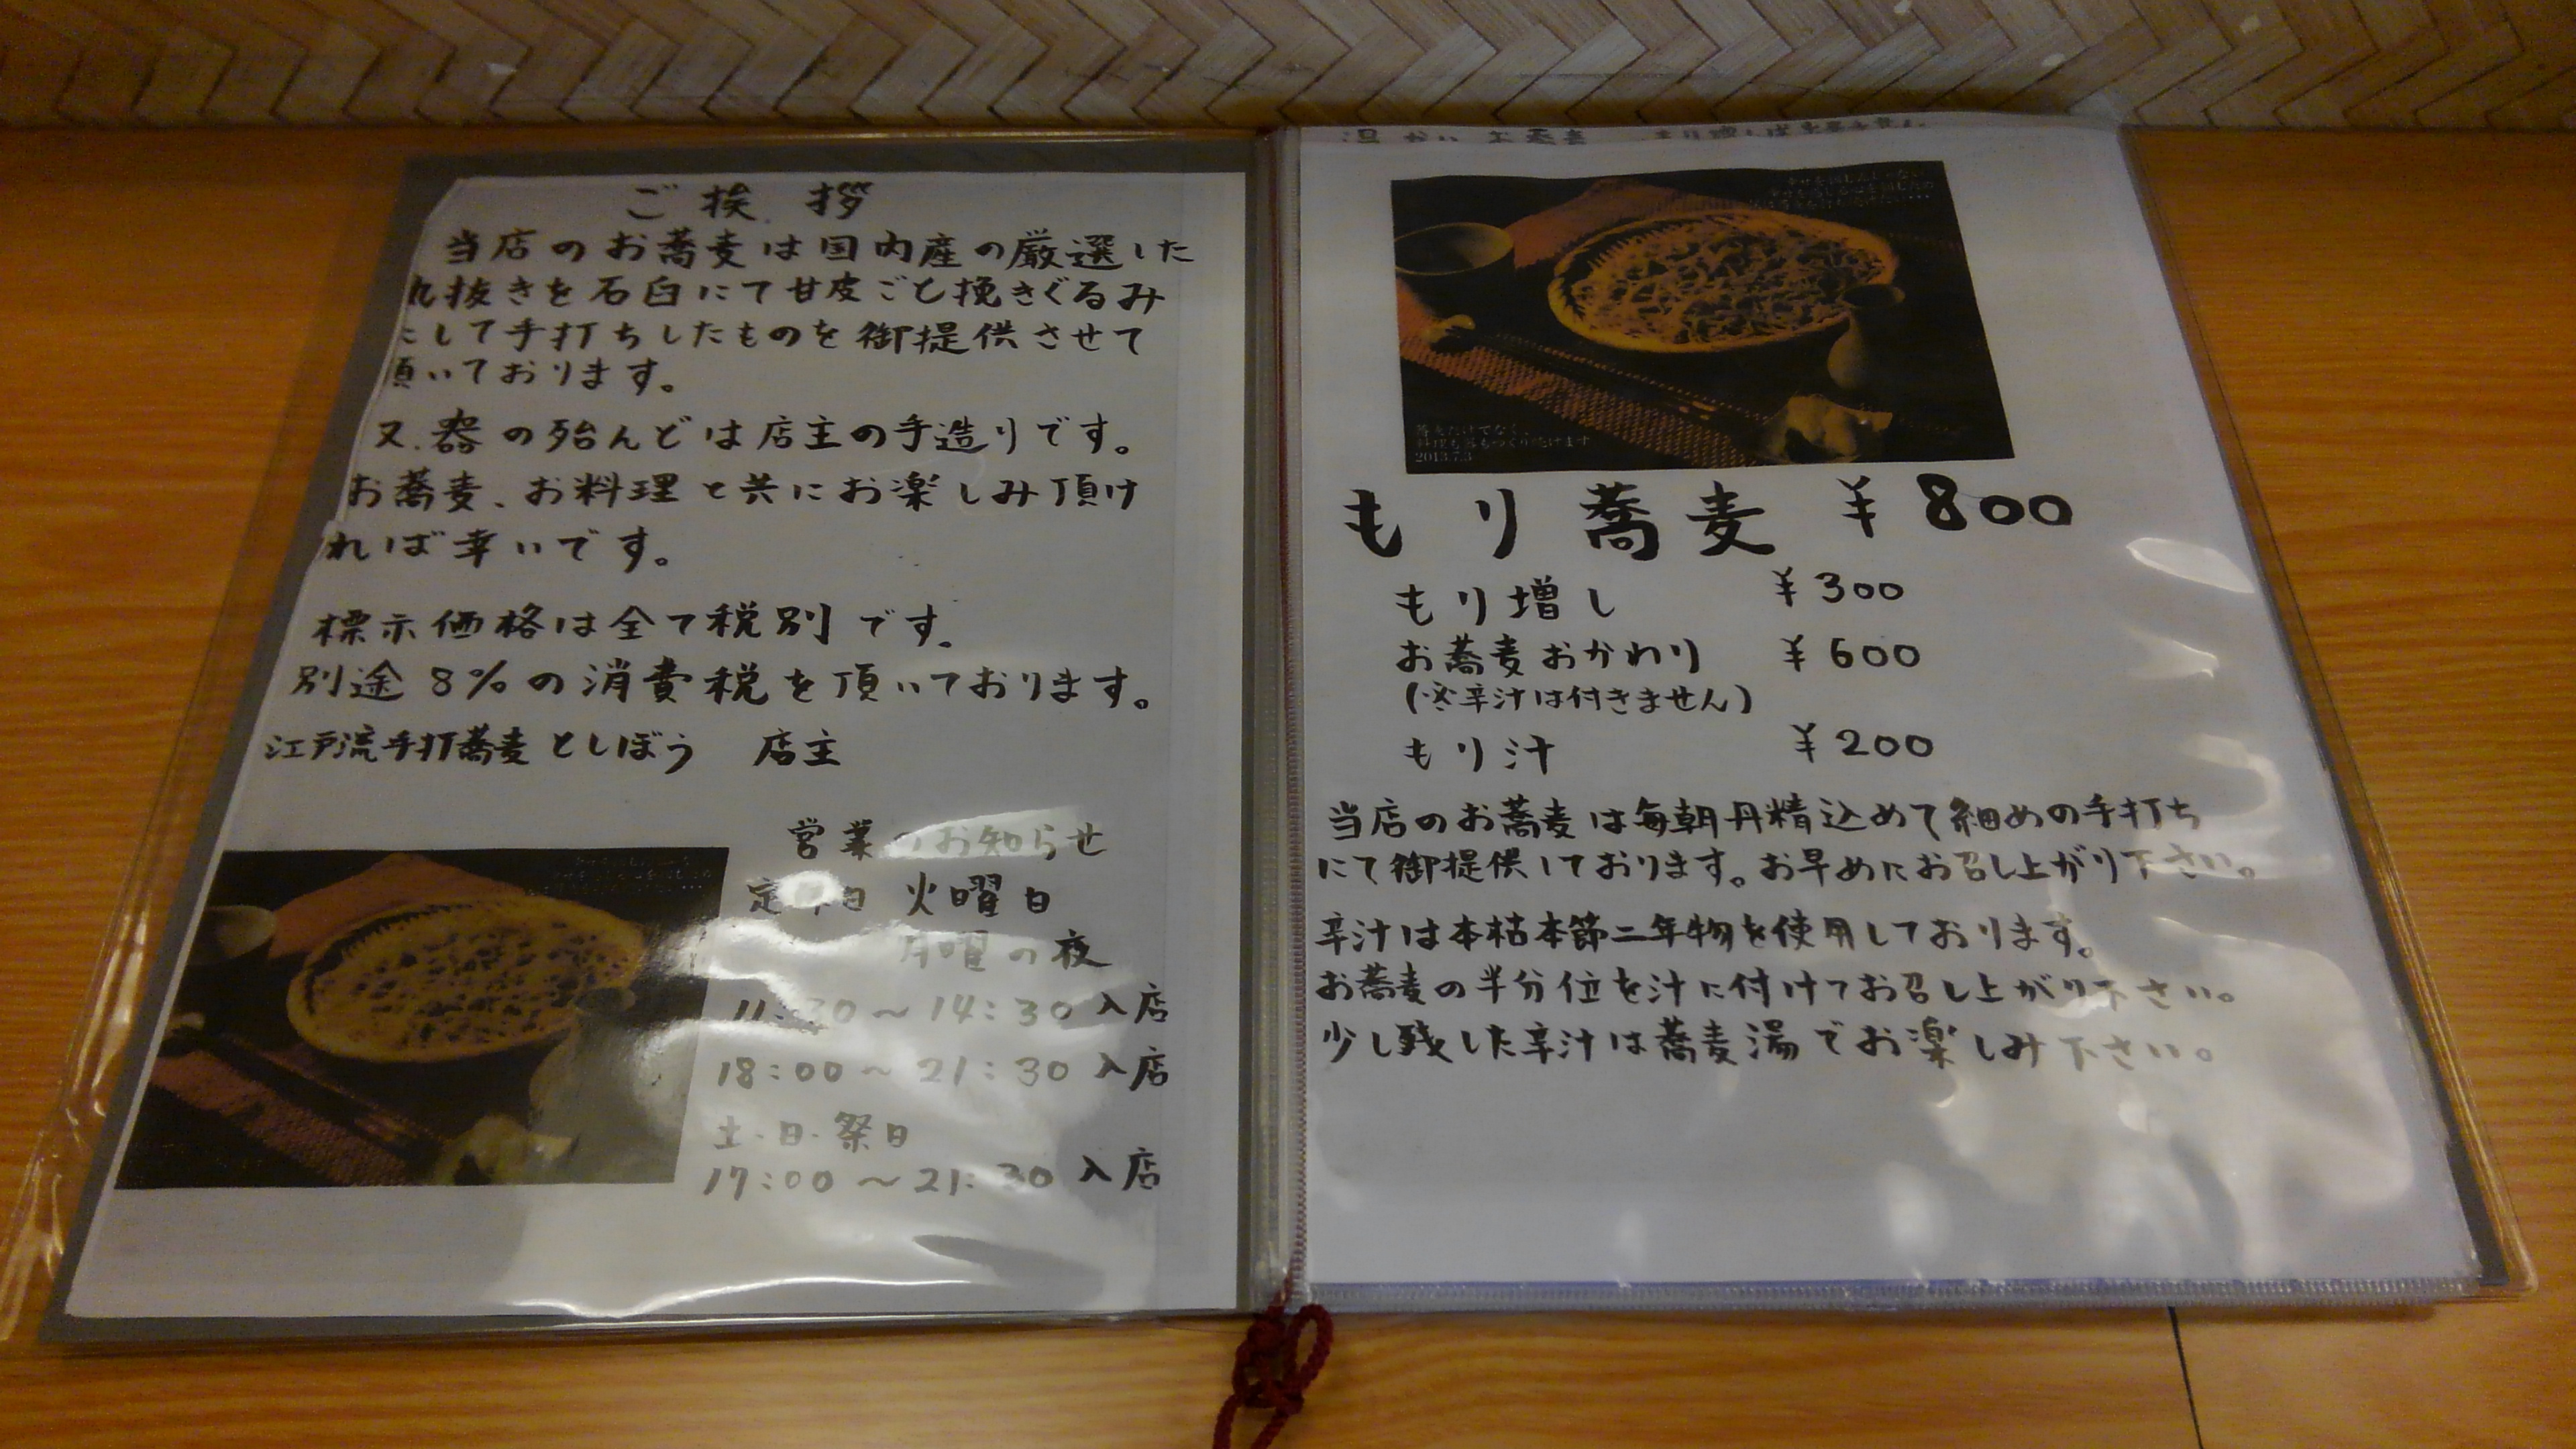 ご挨拶
当店のお蕎麦は国内産の厳選した
丸抜きを石臼にて甘皮ごと挽きぐるみ
にして手打ちしたものを御提供させて
頂いております。
又.器の殆んどは店主の手造りです。
お蕎麦、お料理と共にお楽しみ頂け
れば幸いです。
標示価格は全て税別です.
別途8%の消費税を頂いております。
江戸流手打蕎麦としぼう 店主
営業のお知らせ
定休日 火曜日
月曜の夜
11:30～14:30入店
18:00～21:30入店
土・日・祭日
17:00～21:30入店
温かいお蕎麦
2013.7.3
もり蕎麦 ¥800
もり増し ¥300
お蕎麦おかわり ¥600
(辛汁は付きません)
もり汁 ¥200
当店のお蕎麦は毎朝丹精込めて細めの手打ち
にて御提供しております。お早めにお召し上がり下さい。
辛汁は本枯本節二年物を使用しております。
お蕎麦の半分位を汁に付けてお召し上がり下さい。
少し残した辛汁は蕎麦湯でお楽しみ下さい。